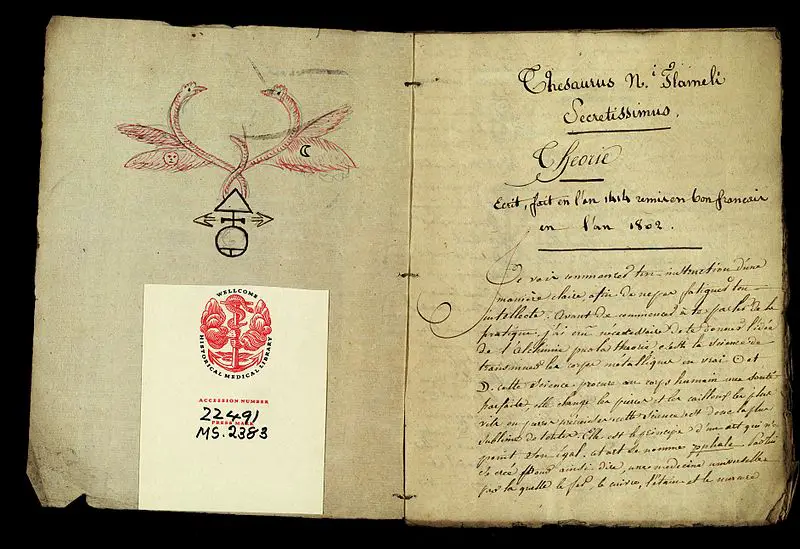 WELLCOME
HISTORICAL MEDICAL LIBRARY
ACCESSION NUMBER
22491
PRESS MARK
MS. 2383
Thesaurus N.i Flameli
Secretissimus.
Théorie
Ecrit, fait en l'an 1414 remis en bon francais
en l'an 1802.
Je vais commancer ton instruction d'une
manière claire, afin de ne pas fatiguer ton
intellecte. Avant de commencer à te parler de la
pratique, j'ai cru nécessaire de te donner l'idée
de l'alchimie par la théorie c'est la science de
transmuer les corps métallique en vrai ☉ et
☽. cette science procure au corps humain une santé
parfaite, elle change les pierres et les cailloux les plus
vils en pierres précieuses cette science est donc la plus
sublime de toutes. Elle est le principe d'un art qui n'a
point son égal. cet art se nomme
créé pour ainsi dire, une médecine universelle
par la quelle le fer, le cuivre, l'étain et le mercure